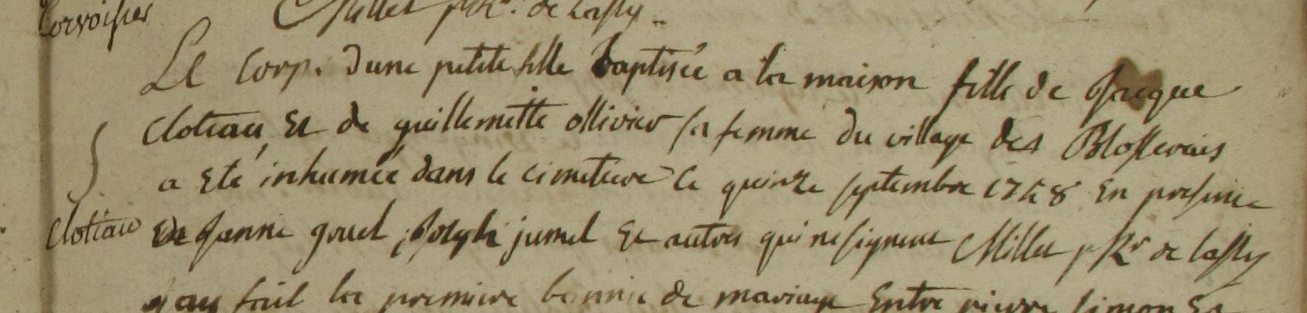 Corvoisier
Millet pbr. de Lassy
Le Corp. dune petite fille baptisée a la maison fille de Jacque
Clotiau Et de guillemette ollivier sa femme du village des Blosserais
a Eté inhumée dans le cimetiere Ce quinze septembre 1758 En presence
Clotiau
de Janne gouel, Joseph jumel Et autres qui ne signent Millet p Rr de Lassy
fait la premiere bannie de mariage Entre pierre simon Et